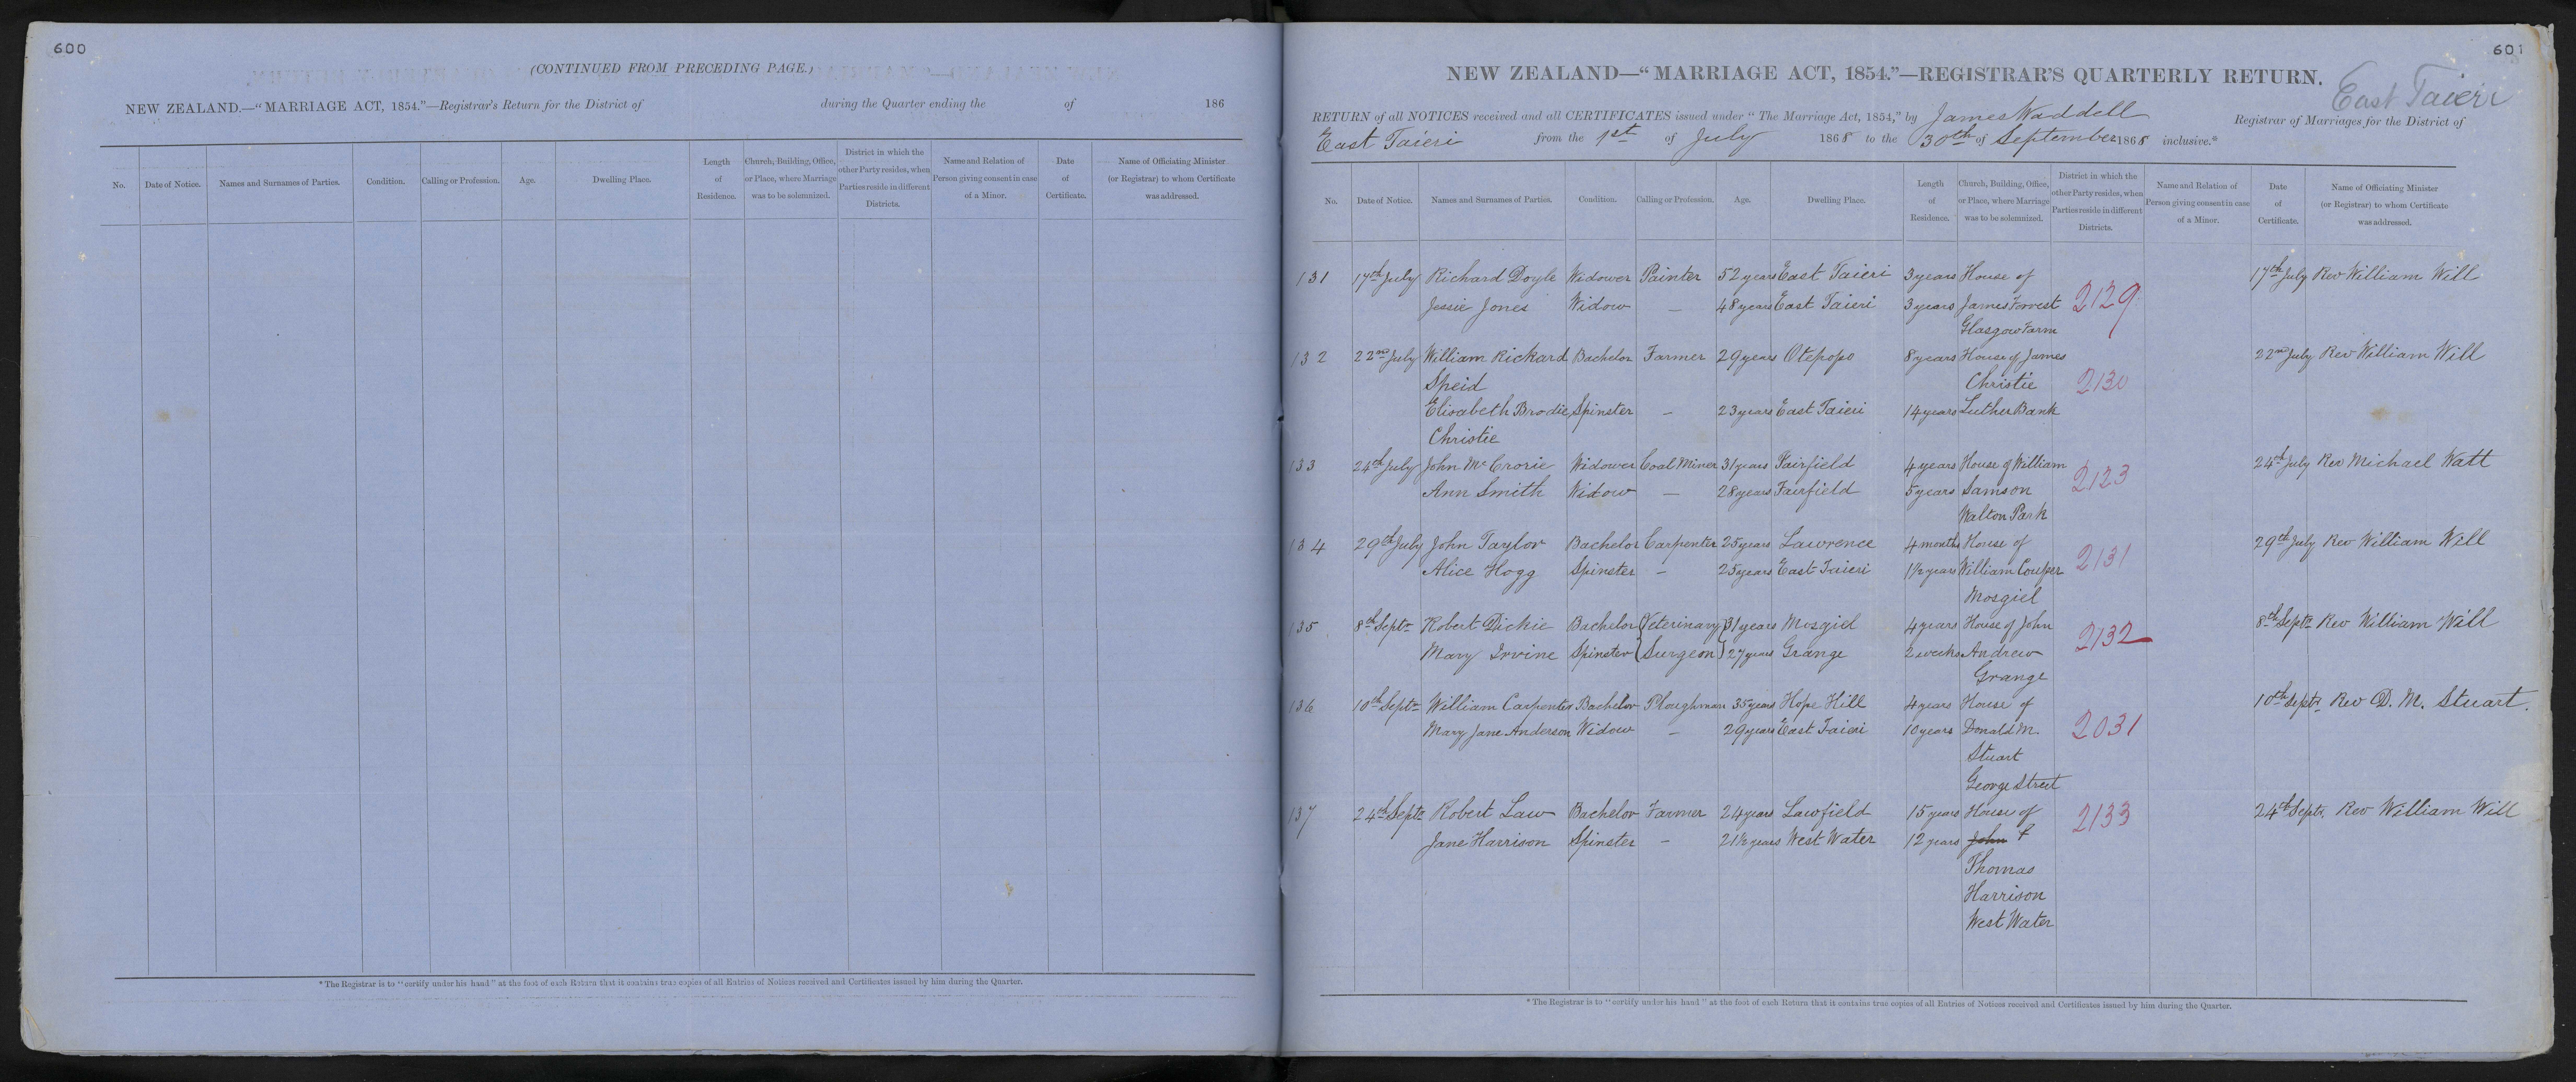 600
(CONTINUED FROM PRECEDING PAGE.)
NEW ZEALAND.—"MARRIAGE ACT, 1854."—Registrar's Return for the District of during the Quarter ending the of 186
No. Date of Notice. Names and Surnames of Parties. Condition. Calling or Profession. Age. Dwelling Place. Length of Residence. Church, Building, Office, or Place, where Marriage was to be solemnized. District in which the other Party resides, when Parties reside in different Districts. Name and Relation of Person giving consent in case of a Minor. Date of Certificate. Name of Officiating Minister (or Registrar) to whom Certificate was addressed.
* The Registrar is to "certify under his hand" at the foot of each Return that it contains true copies of all Entries of Notices received and Certificates issued by him during the Quarter.
601
NEW ZEALAND—"MARRIAGE ACT, 1854."—REGISTRAR'S QUARTERLY RETURN.
East Taieri
RETURN of all NOTICES received and all CERTIFICATES issued under "The Marriage Act, 1854," by James Waddell Registrar of Marriages for the District of
East Taieri from the 1st of July 1868 to the 30th of September 1868 inclusive.*
No. Date of Notice. Names and Surnames of Parties. Condition. Calling or Profession. Age. Dwelling Place. Length of Residence. Church, Building, Office, or Place, where Marriage was to be solemnized. District in which the other Party resides, when Parties reside in different Districts. Name and Relation of Person giving consent in case of a Minor. Date of Certificate. Name of Officiating Minister (or Registrar) to whom Certificate was addressed.
131 17th July Richard Doyle Widower Painter 52 years East Taieri 3 years House of 17th July Rev William Will
Jessie Jones Widow — 48 years East Taieri 3 years James Forrest 2129
Glasgow Farm
132 22nd July William Rickard Bachelor Farmer 29 years Otepopo 8 years House of James 22nd July Rev William Will
Speid Christie 2130
Elisabeth Brodie Spinster — 23 years East Taieri 14 years Luther Bank
Christie
133 24th July John McCrorie Widower Coal Miner 31 years Fairfield 4 years House of William 24th July Rev Michael Watt
Ann Smith Widow — 28 years Fairfield 5 years Samson 2123
Walton Park
134 29th July John Taylor Bachelor Carpenter 25 years Lawrence 4 months House of 29th July Rev William Will
Alice Hogg Spinster — 25 years East Taieri 1½ years William Couper 2131
Mosgiel
135 8th Septr Robert Dickie Bachelor Veterinary 31 years Mosgiel 4 years House of John 8th Septr Rev William Will
Mary Irvine Spinster Surgeon 27 years Grange 2 weeks Andrew 2132
Grange
136 10th Septr William Carpenter Bachelor Ploughman 35 years Hope Hill 4 years House of 10th Septr Rev D. M. Stuart.
Mary Jane Anderson Widow — 29 years East Taieri 10 years Donald M. 2031
Stuart
George Street
137 24th Septr Robert Law Bachelor Farmer 24 years Lawfield 15 years House of 2133 24th Septr. Rev William Will
Jane Harrison Spinster — 21½ years West Water 12 years John
Thomas
Harrison
West Water
* The Registrar is to "certify under his hand" at the foot of each Return that it contains true copies of all Entries of Notices received and Certificates issued by him during the Quarter.